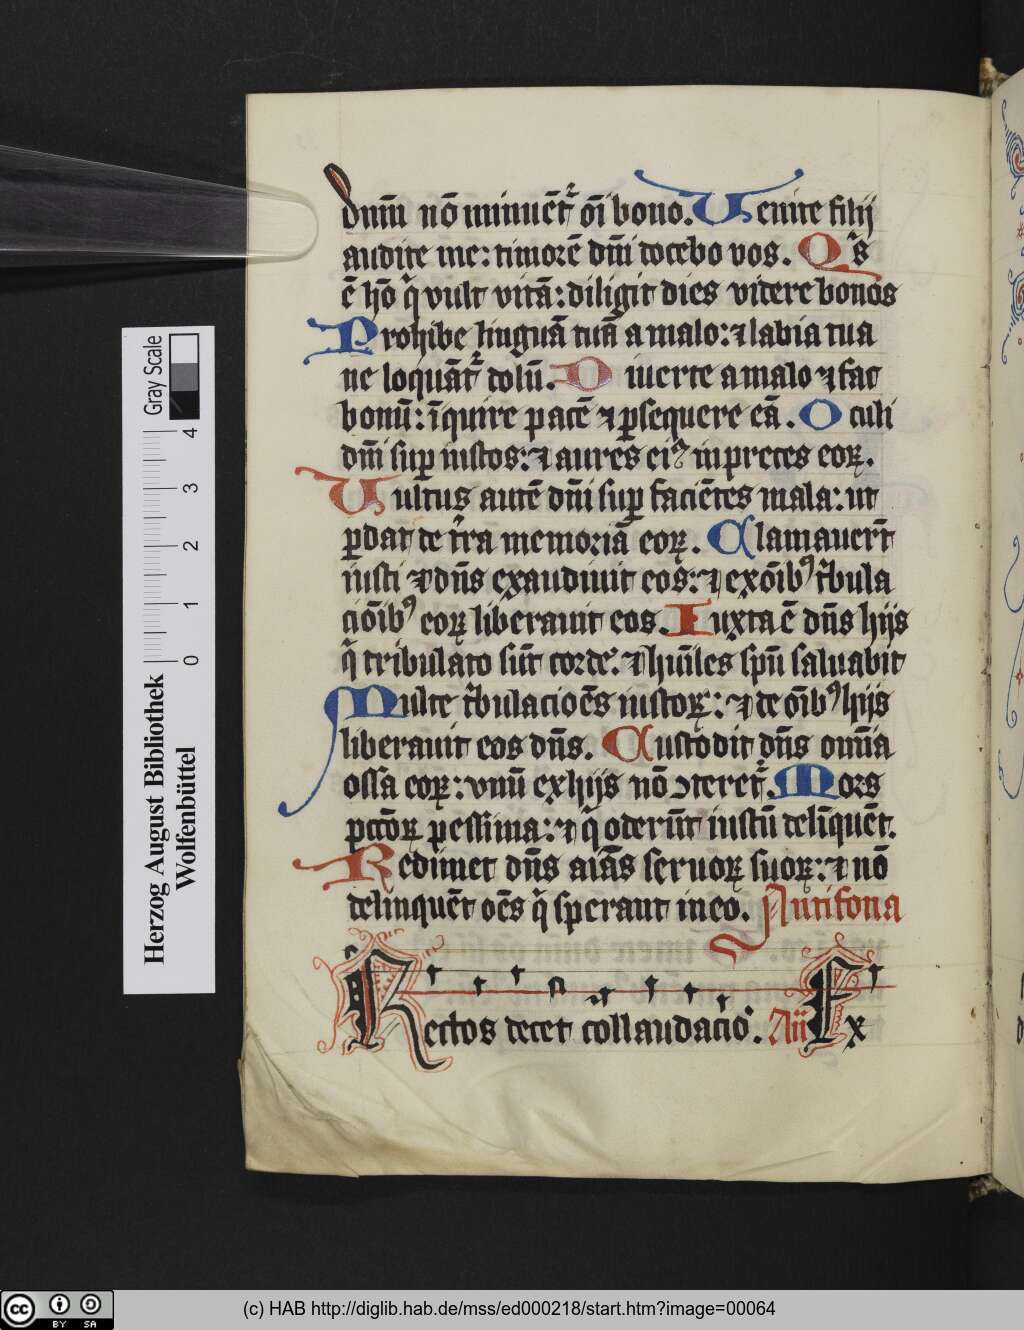 dn̄m nō minuēt᷑ oī bono. Venite filij
audite me: timorē dn̄i docebo vos. Qͥs
ē hō qͥ vult vitā: diligit dies videre bonos
Prohibe linguā tuā a malo: ⁊ labia tua
ne loquāt᷑ dolū. Diuerte a malo ⁊ fac
bonū: īquire pacē ⁊ ꝑsequere eā. Oculi
dn̄i suꝑ iustos: ⁊ aures eiꝰ in preces eoꝝ.
Vultus autē dn̄i suꝑ faciētes mala: ut
ꝑdat de t̄ra memoriā eoꝝ. Clamauer̄t
iusti ⁊ dn̄s exaudiuit eos: ⁊ ex oībꝰ t̄bula
cioībꝰ eoꝝ liberauit eos. Iuxta ē dn̄s hijs
qͥ tribulato sūt corde: ⁊ hūiles spū saluabit
Multe t̄bulacioēs iustoꝝ: ⁊ de oībꝰ hijs
liberauit eos dn̄s. Custodit dn̄s omīa
ossa eoꝝ: vnū ex hijs nō ↄteret᷑. Mors
pctōꝝ pessima: ⁊ qͥ oderūt iustū delīquēt.
Redimet dn̄s aīas seruoꝝ suoꝝ: ⁊ nō
delinquēt oēs qͥ sperant in eo. Antifona
Rectos decet collaudacio. Aīī Ex
Herzog August Bibliothek
Wolfenbüttel
Gray Scale
0 1 2 3 4
cc BY SA
(c) HAB http://diglib.hab.de/mss/ed000218/start.htm?image=00064